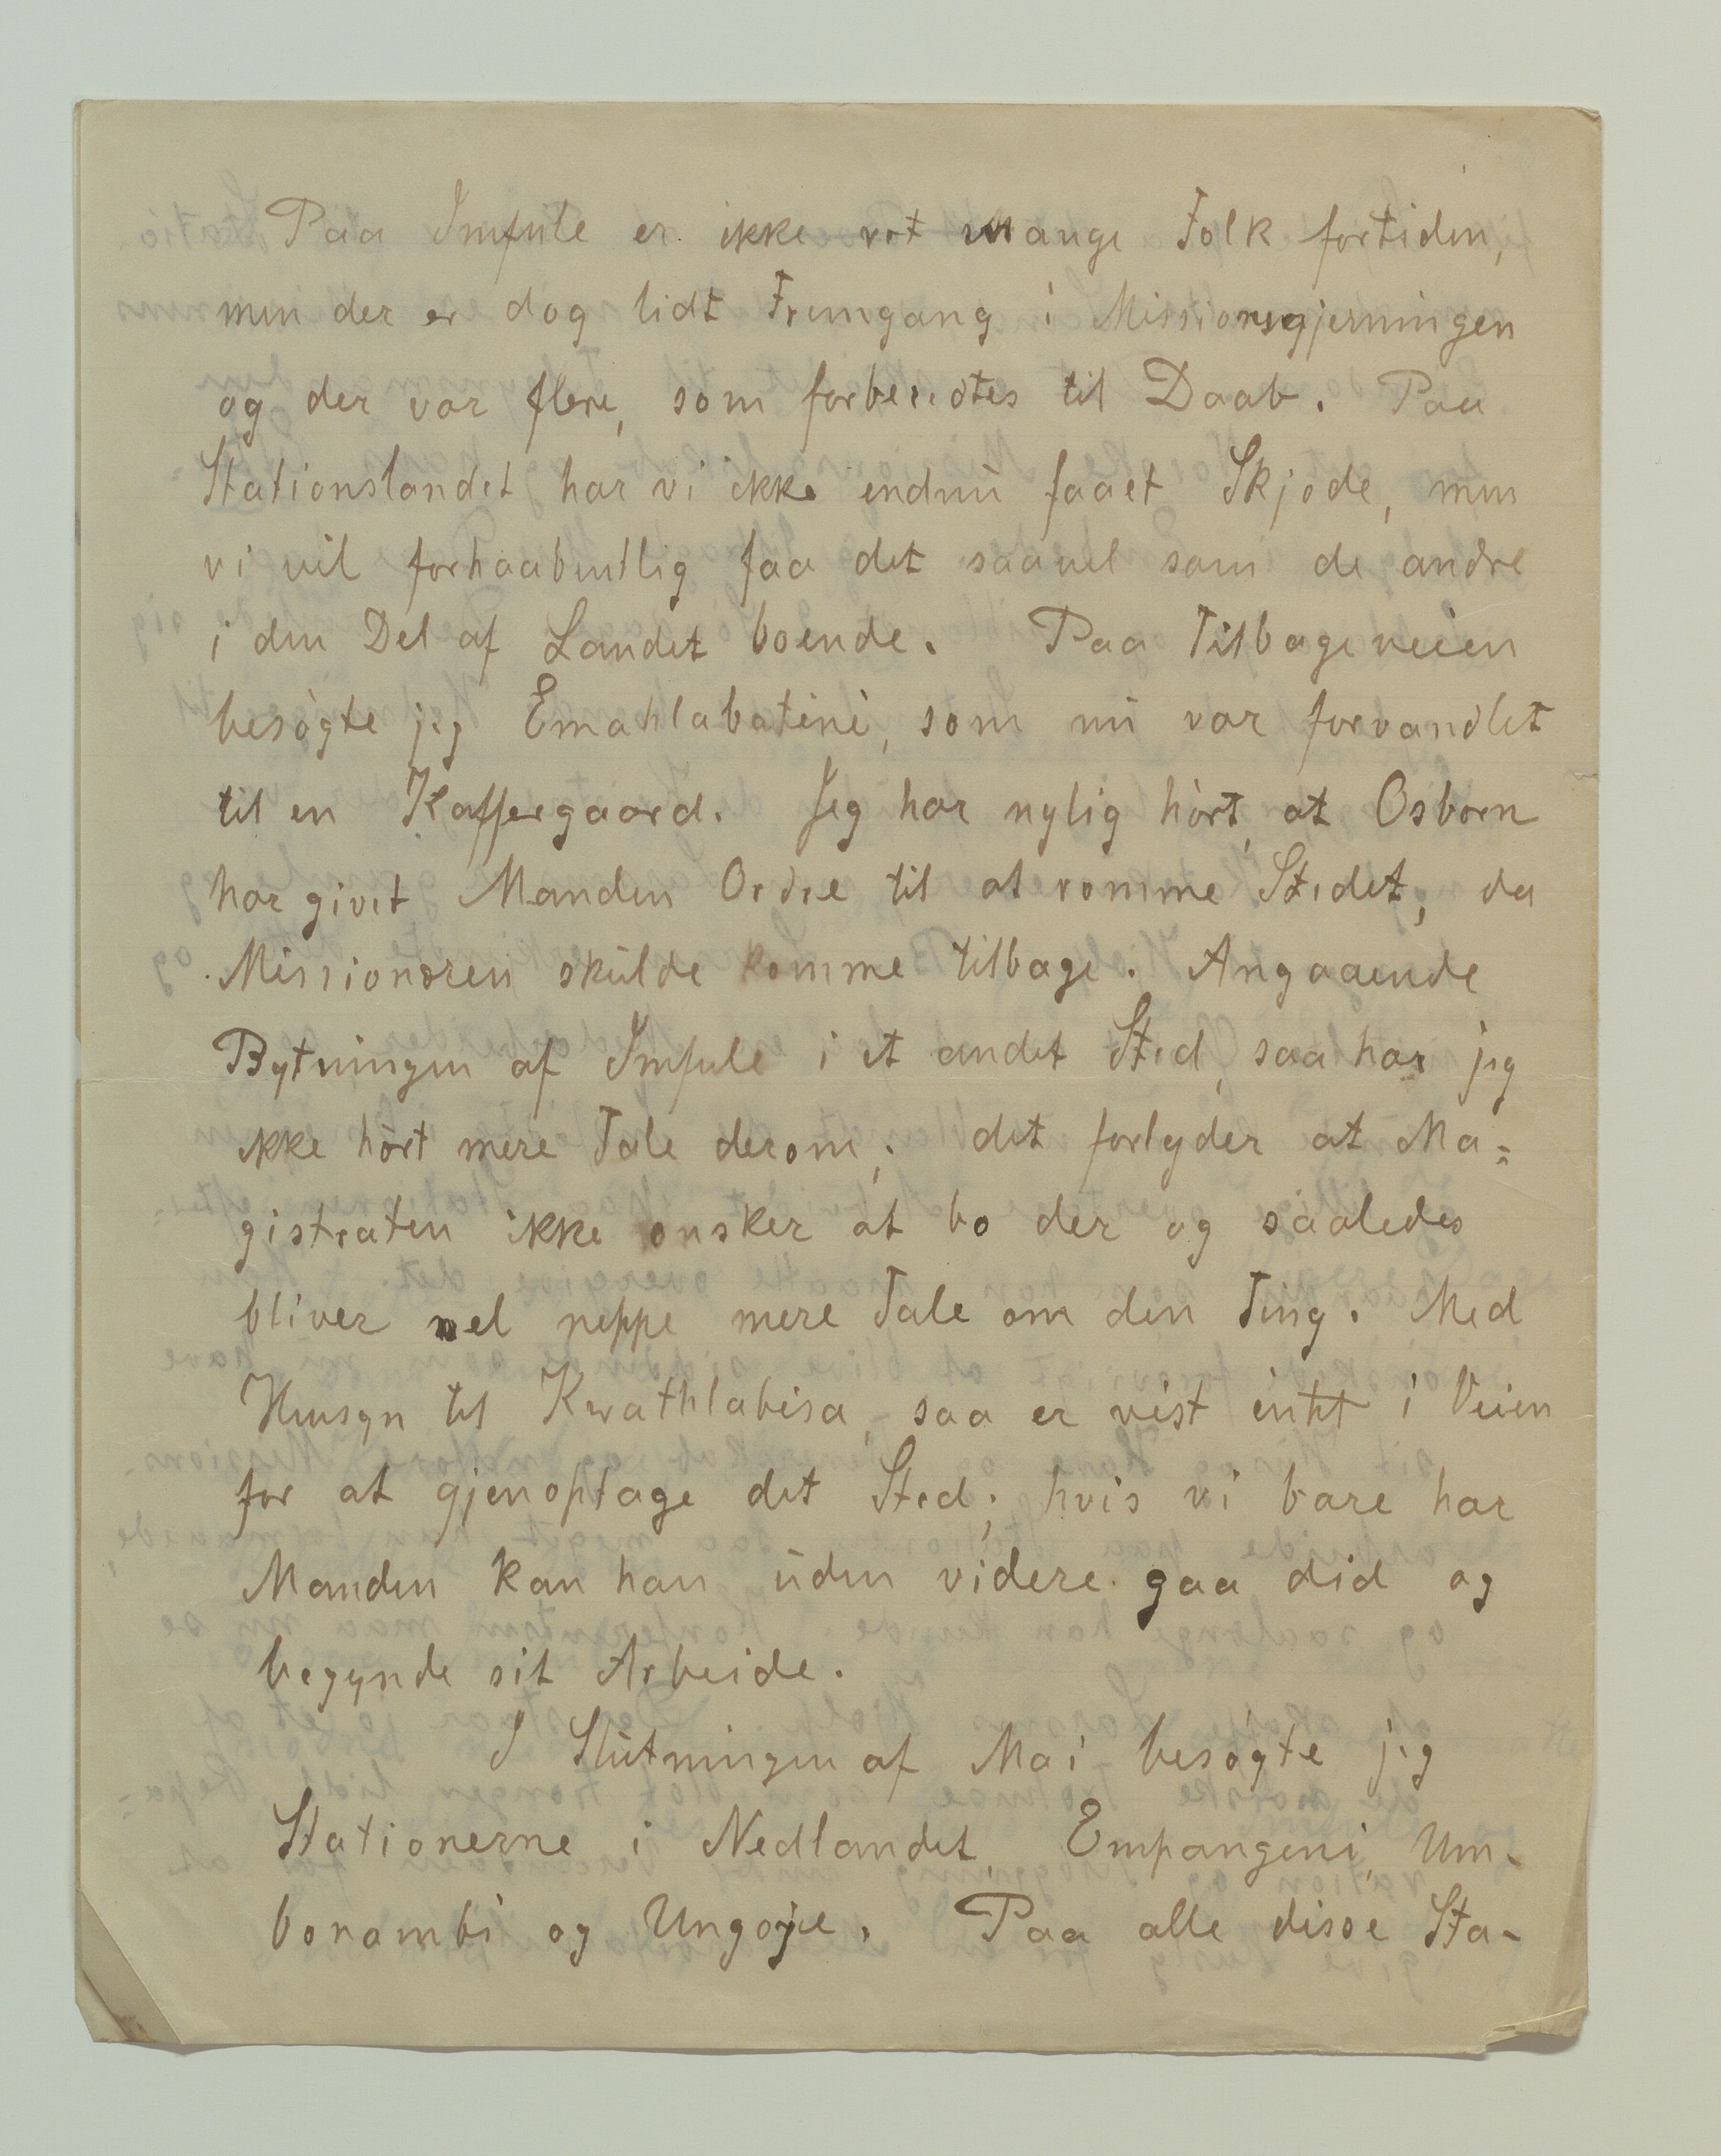 Paa Imfule er ikke ret mange Folk fortiden,
men der er dog lidt Fremgang i Missionsgjerningen
og der var flere, som forberedtes til Daab. Paa
Stationslandet har vi ikke endnu faaet Skjøde, men
vi vil forhaabentlig faa det saavel som de andre
i den Del af Landet boende. Paa Tilbageveien
besøgte jeg Emahlabatini, som nu var forvandlet
til en Kaffergaard. Jeg har nylig hørt, at Osborn
har givet Manden Ordre til at rømme Stedet, da
Missionæren skulde komme tilbage. Angaaende
Bytningen af Imfule i et andet Sted, saa har jeg
ikke hørt mere Tale derom; det forlyder at Ma=
gistraten ikke ønsker at bo der og saaledes
bliver vel neppe mere Tale om den Ting. Med
Hensyn til Kwathlabisa, saa er vist intet i Veien
for at gjenoptage det Sted; hvis vi bare har
Manden kan han uden videre gaa did og
begynde sit Arbeide.
I Slutningen af Mai besøgte jeg
Stationerne i Nedlandet, Empangeni, Um-
bonambi og Ungoje. Paa alle disse Sta-